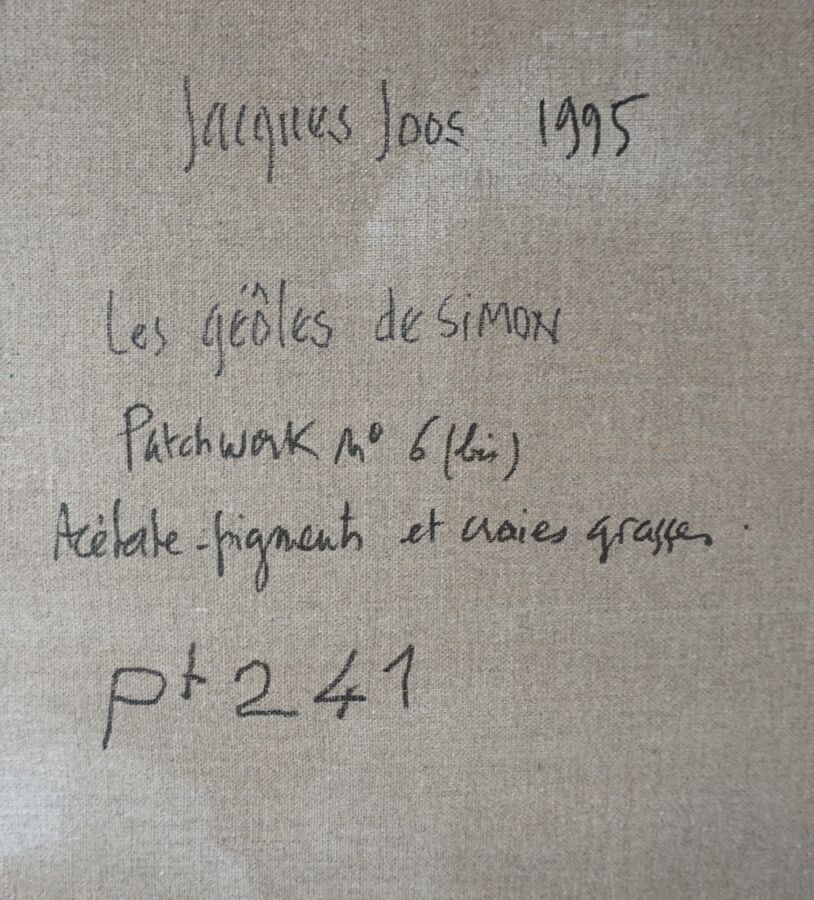 Jacques Joos 1995
Les gëôles de SiMON
Patchwork n° 6 (bis)
Acétate - pigments et craies grasses.
Pt 241